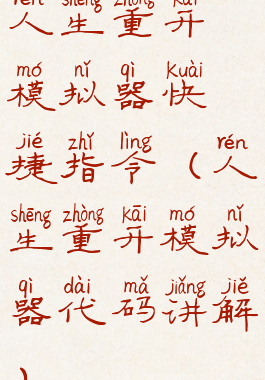 rén shēng zhòng kāi
人生重开
mó nǐ qì kuài
模拟器快
jié zhǐ lìng rén
捷指令（人
shēng zhòng kāi mó nǐ
生重开模拟
qì dài mǎ jiǎng jiě
器代码讲解
）